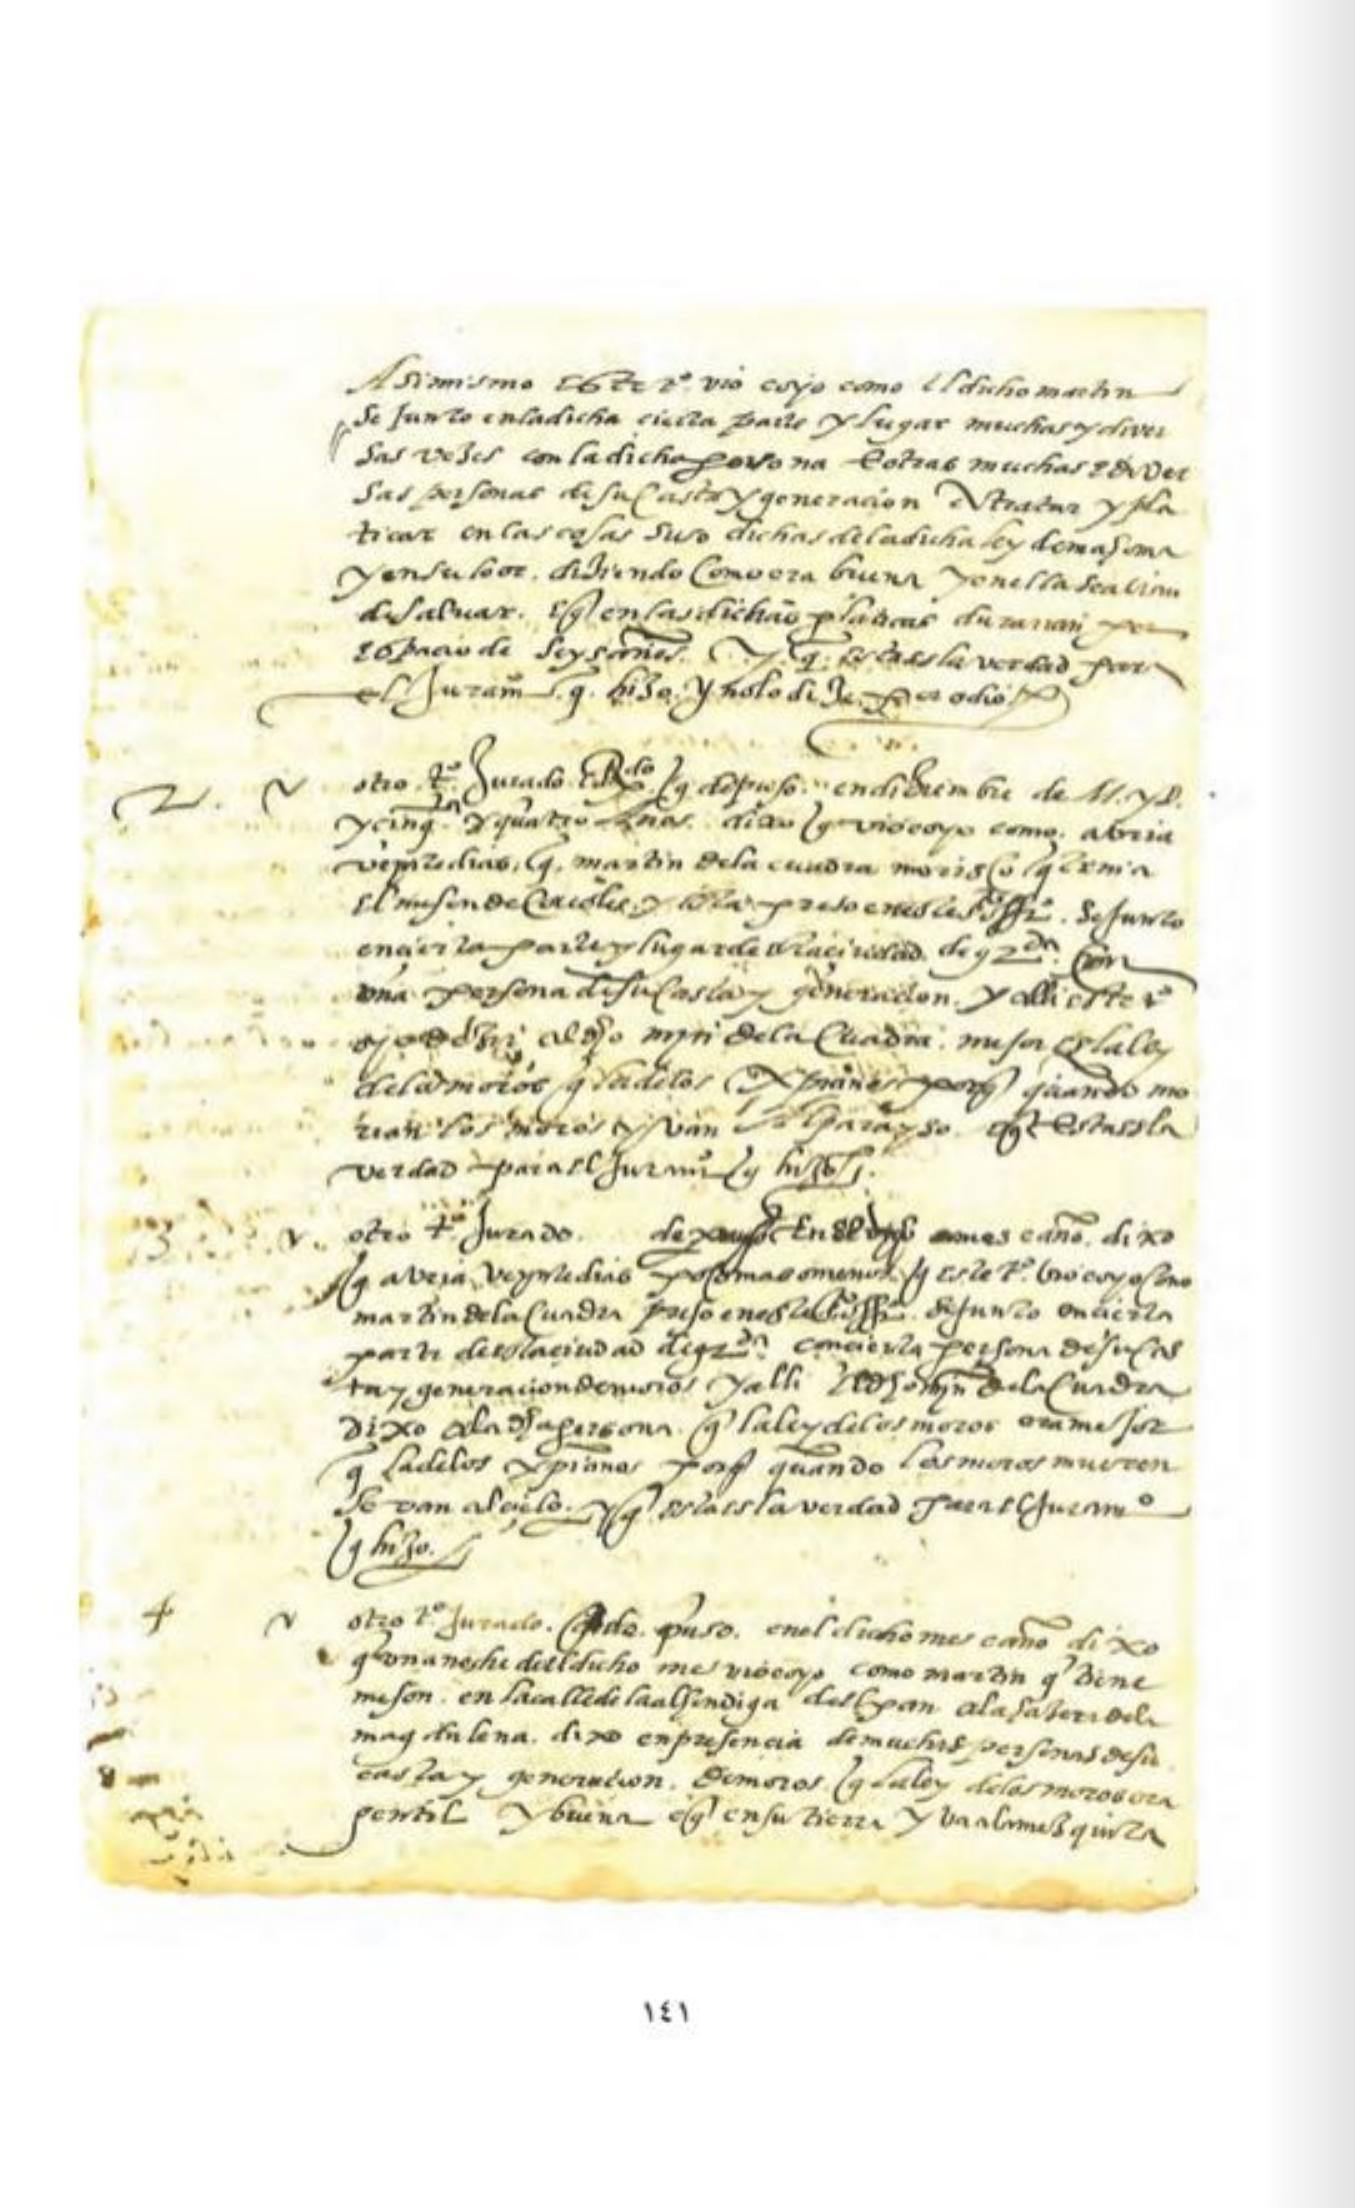 Asimismo este tº vio e oyo como el dicho martin
se Junto en la dicha cierta parte y lugar muchas y diver
sas vezes con la dicha persona e otras muchas e diver
sas personas de su casta y generacion a tratar y pla
ticar en las cosas suso dichas de la dicha ley de mahoma
y en su loor. diziendo como era buena y en ella se avian
de saluar. e q en las dichas platicas duravan por
espacio de seys años. y q. esta es la verdad para
el Juramº q. hizo. y no lo dize por odio
2. otro tº Jurado e Rdo q depuso en diziembre de M. y D.
y cinqta y quatro años. dixo q vio e oyo como. abria
veynte dias. q. martin de la cuadra morisco q tenia
el meson de y esta preso en este sº offº. se Junto
en cierta parte y lugar desta ciudad de gzda. con
una persona de su casta y generacion. y alli este tº
oyo dezir al dho mrn de la Cuadra. mejor es la ley
de los moros q la de los xpianos porq quando mo
rian los moros yvan al parayso. e q esta es la
verdad para el Juramº q hizo.
otro tº Jurado. depuso en el dho mes e año. dixo
q avria veynte dias poco mas o menos. q este tº. vio e oyo como
martin de la Cuadra preso en este sº offº. se Junto en cierta
parte desta ciudad de gzda. con cierta persona de su cas
ta y generacion de moros y alli el dho mrn de la Cuadra
dixo a la dha persona. q la ley de los moros era mejor
q la de los xpianos porq quando los moros mueren
se van al cielo. y q esta es la verdad para el Juramº
q hizo.
4 otro tº Jurado. q de puso. en el dicho mes e año dixo
q una noche del dicho mes vio e oyo como martin q tiene
meson. en la calle de la alhondiga del pan a la de la
magdalena. dixo en presencia de muchas personas de su
casta y generacion. de moros. q la ley de los moros era
gentil y buena e q en su tierra y va a la mezquita
١٤١